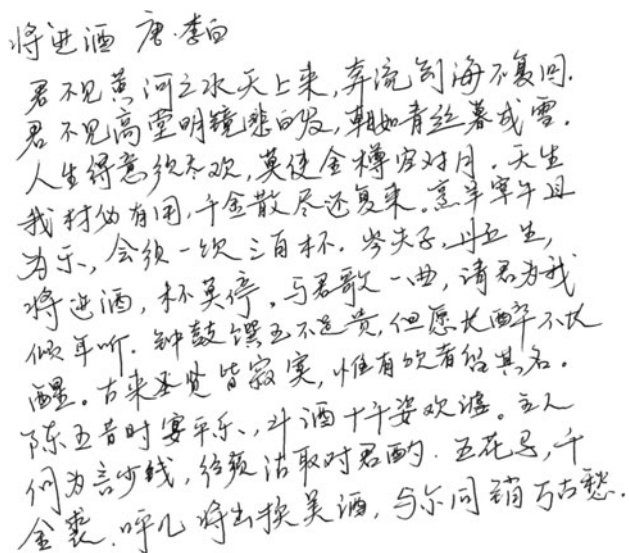 将进酒 唐·李白
君不见黄河之水天上来,奔流到海不复回.
君不见高堂明镜悲白发,朝如青丝暮成雪.
人生得意须尽欢,莫使金樽空对月.天生
我材必有用,千金散尽还复来.烹羊宰牛且
为乐,会须一饮三百杯.岑夫子,丹丘生,
将进酒,杯莫停.与君歌一曲,请君为我
倾耳听.钟鼓馔玉不足贵,但愿长醉不长
醒。古来圣贤皆寂寞,惟有饮者留其名.
陈王昔时宴平乐,斗酒十千姿欢谑。主人
何为言少钱,径须沽取对君酌.五花马,千
金裘.呼儿将出换美酒,与尔同销万古愁.